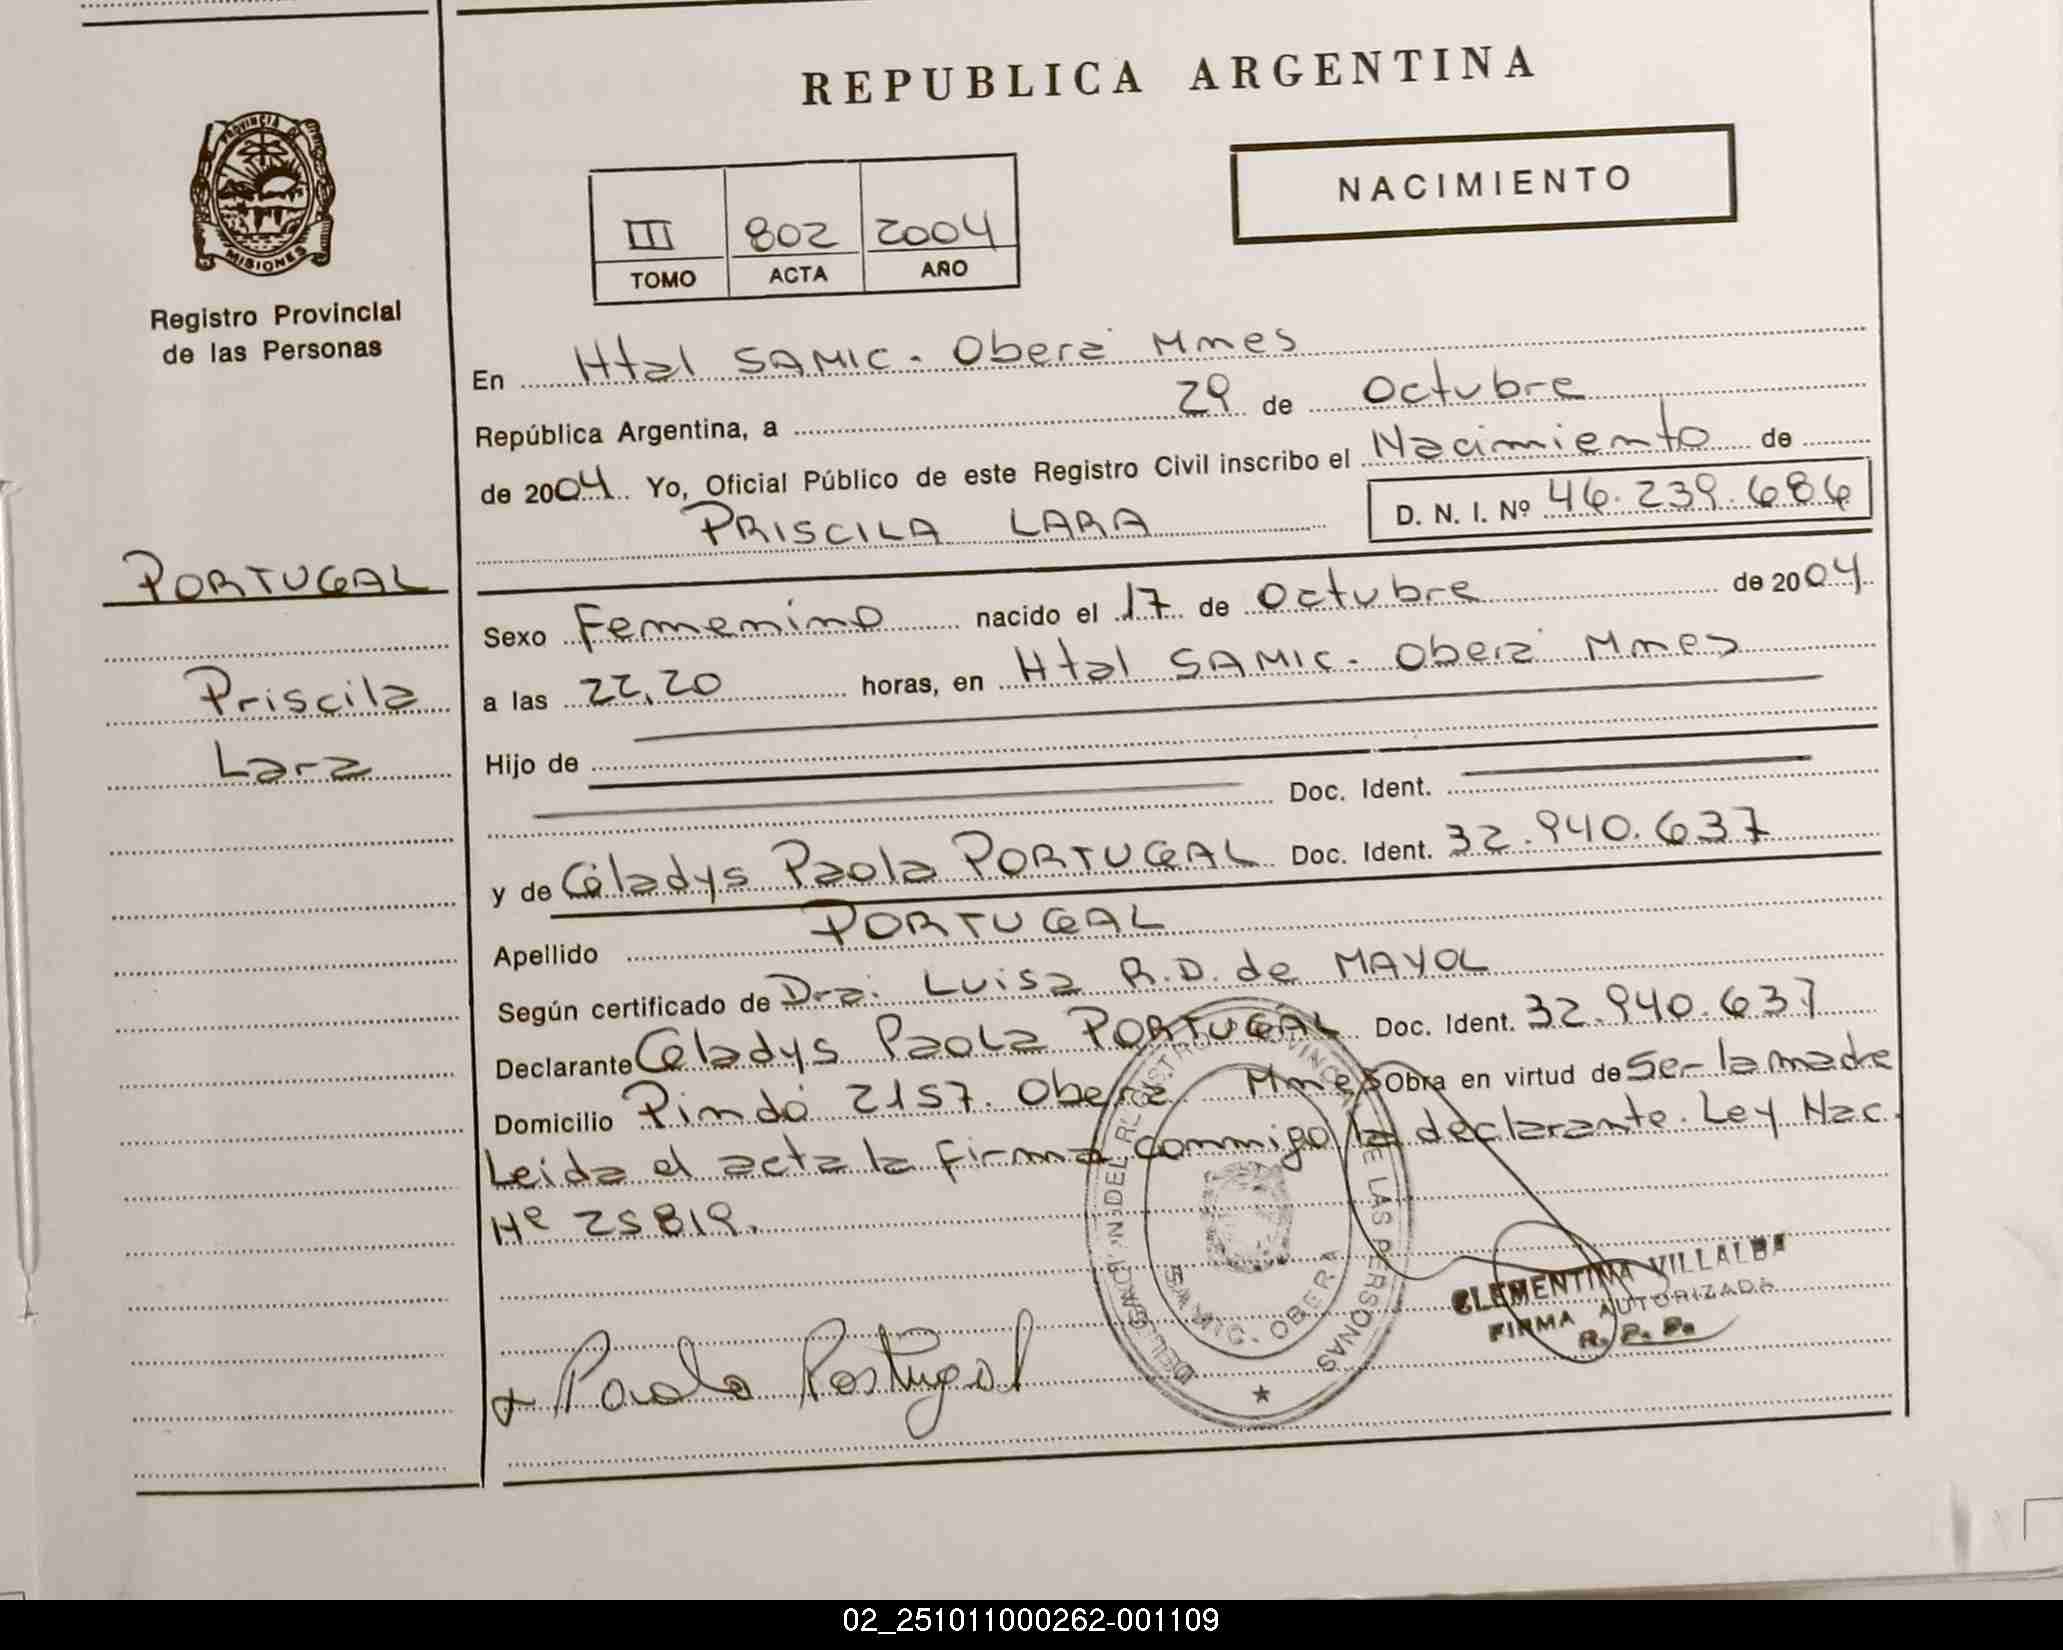 REPUBLICA ARGENTINA
NACIMIENTO
III 802 2004
TOMO ACTA AÑO
PROVINCIA DE
MISIONES
Registro Provincial
de las Personas
PORTUGAL
Priscila
Lara
En Htal SAMIC. Oberá Mnes
República Argentina, a 29 de Octubre
de 2004. Yo, Oficial Público de este Registro Civil inscribo el Nacimiento de
PRISCILA LARA D. N. I. Nº 46.239.686
Sexo Femenino nacido el 17 de Octubre de 2004
a las 22,20 horas, en Htal SAMIC. Oberá Mnes
Hijo de
Doc. Ident.
y de Gladys Paola PORTUGAL Doc. Ident. 32.940.637
Apellido PORTUGAL
Según certificado de Dra. Luisa R.D. de MAYOL
Declarante Gladys Paola PORTUGAL Doc. Ident. 32.940.637
Domicilio Pindó 2157. Oberá Mnes Obra en virtud de Ser la madre
Leida el acta la firma conmigo la declarante. Ley Nac.
Nº 25819.
Paola Portugal
DEL REGISTRO PROVINCIAL DE LAS PERSONAS
SAMIC. OBERA
CLEMENTINA VILLALBA
FIRMA AUTORIZADA
R. P. P.
02_251011000262-001109